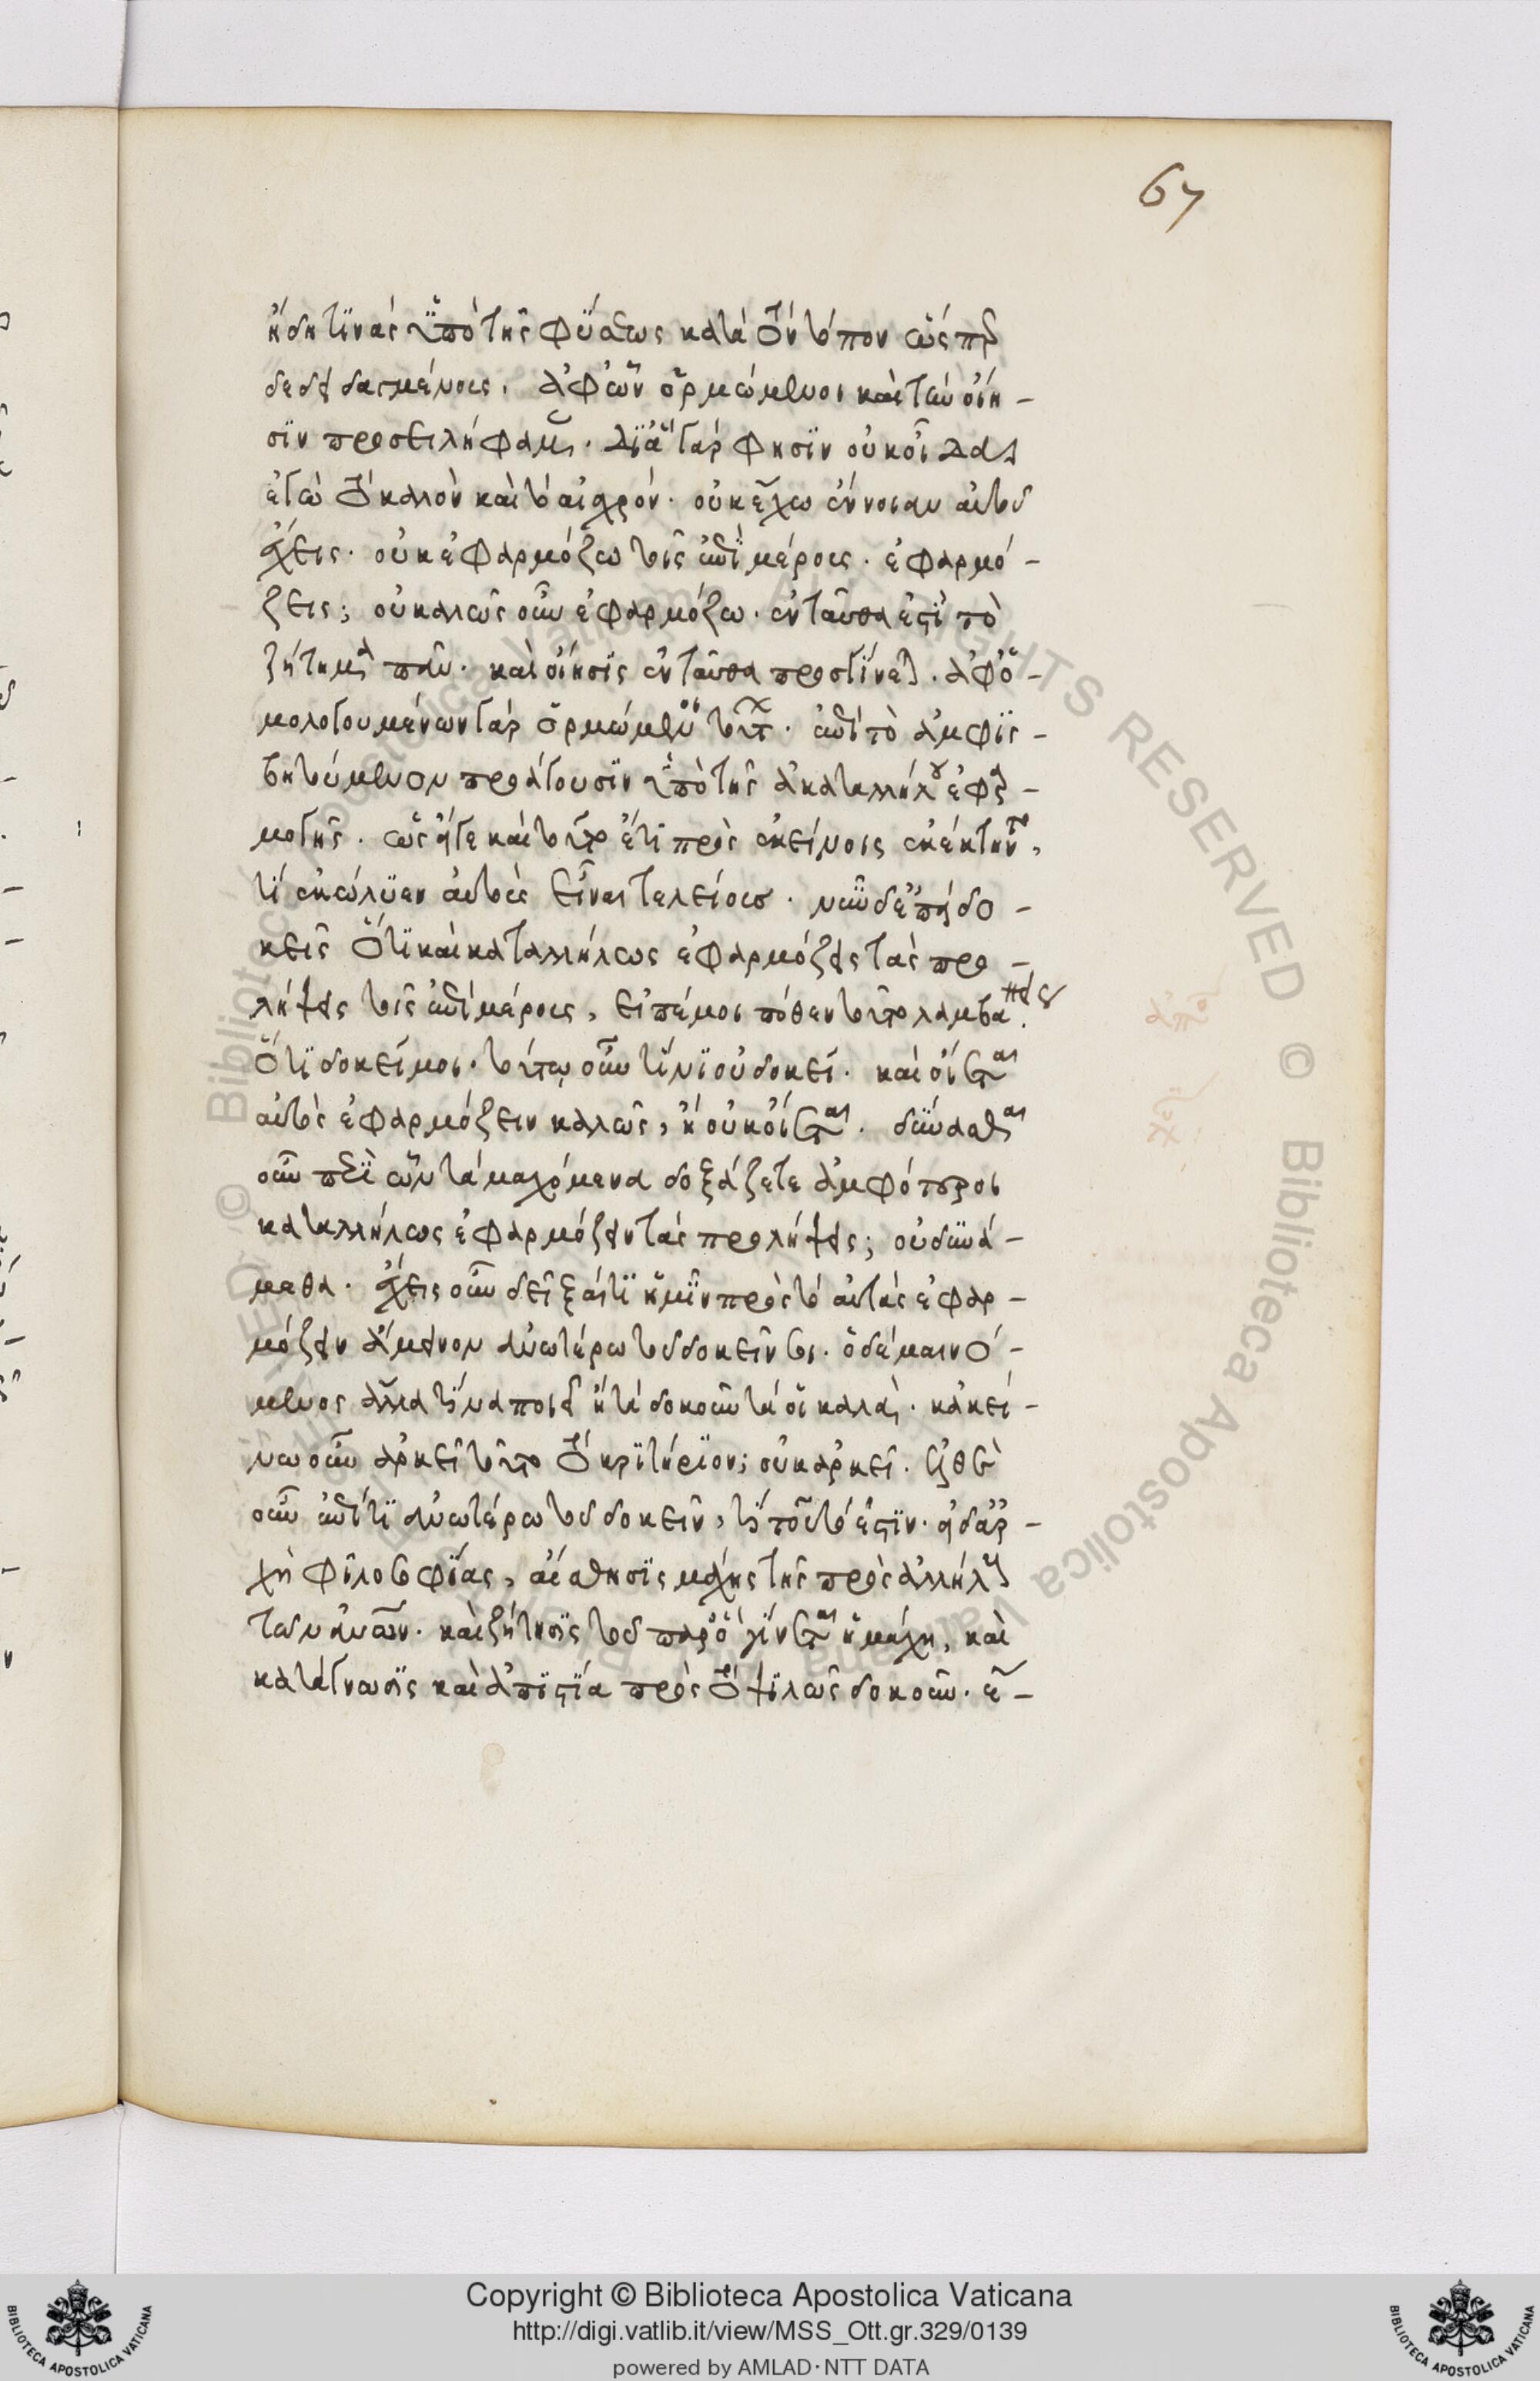 67
ἤδη τινὰς ὑπὸ τῆς φύσεως κατὰ τὸν τόπον ὥσπερ
δεδιδαγμένους. ἀφ' ὧν ὁρμώμενοι καὶ τὴν οἴη-
σιν προσειλήφαμεν. διὰ τί γὰρ φησὶν οὐκ οἶδα
ἐγὼ τὸ καλὸν καὶ τὸ αἰσχρόν. οὐκ ἔχω ἔννοιαν αὐτοῦ
ἔχεις. οὐκ ἐφαρμόζω τοῖς ἐπὶ μέρους. ἐφαρμό-
ζεις; οὐ καλῶς οὖν ἐφαρμόζω. ἐνταῦθά ἐστι τὸ
ζήτημα πᾶν. καὶ οἴησις ἐνταῦθα προσγίνεται. ἀφ' ὁ-
μολογουμένων γὰρ ὁρμώμενοι τούτων. ἐπὶ τὸ ἀμφισ-
βητούμενον προάγουσιν ὑπὸ τῆς ἀκαταλλήλου ἐφαρ-
μογῆς. ὡς εἴγε καὶ τοῦτο ἔτι πρὸς ἐκείνοις ἐκέκτηντο,
τί ἐκώλυεν αὐτοὺς εἶναι τελείους. νῦν δ' ἐπεὶ δο-
κεῖς ὅτι καὶ καταλλήλως ἐφαρμόζεις τὰς προ-
λήψεις τοῖς ἐπὶ μέρους, εἰπέ μοι πόθεν τοῦτο λαμβάνεις
ὅτι δοκεῖ μοι. τούτῳ οὖν τινὶ οὐ δοκεῖ. καὶ οἴεται
αὐτὸς ἐφαρμόζειν καλῶς, ἢ οὐκ οἴεται. δύνασθαι
οὖν περὶ ὧν τὰ μαχόμενα δοξάζετε ἀμφότεροι
καταλλήλως ἐφαρμόζειν τὰς προλήψεις; οὐ δυνά-
μεθα. ἔχεις οὖν δεῖξαί τι ἡμῖν πρὸς τὸ αὐτὰς ἐφαρ-
μόζειν ἄμεινον ἀνωτέρω τοῦ δοκεῖν σοι. ὁ δὲ μαινό-
μενος ἄλλα τινὰ ποιεῖ ἢ τὰ δοκοῦντά οἱ καλά. κἀκεί-
νῳ οὖν ἀρκεῖ τοῦτο τὸ κριτήριον; οὐκ ἀρκεῖ. ἐλθὲ
οὖν ἐπί τι ἀνωτέρω τοῦ δοκεῖν, τί τοῦτό ἐστιν. εἰδ' ἀρ-
χὴ φιλοσοφίας, αἴσθησις μάχης τῆς πρὸς ἀλλήλους
τῶν ἀνθρώπων. καὶ ζήτησις τοῦ παρ' ὃ γίνεται ἡ μάχη, καὶ
κατάγνωσις καὶ ἀπιστία πρὸς τὸ ψιλῶς δοκοῦν. ἔ-
Copyright © Biblioteca Apostolica Vaticana
http://digi.vatlib.it/view/MSS_Ott.gr.329/0139
powered by AMLAD·NTT DATA